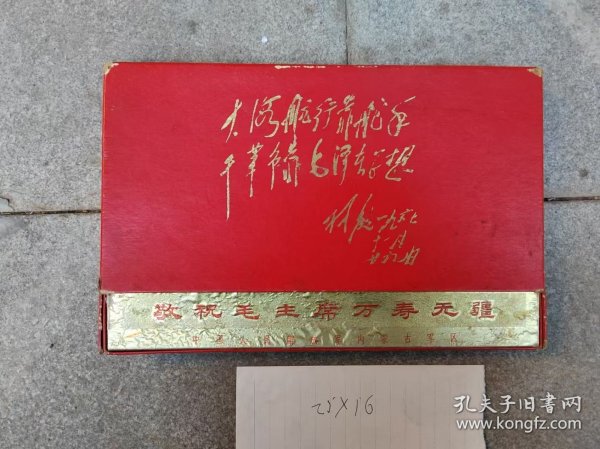 大海航行靠舵手
干革命靠毛泽东思想
林彪 一九六七
十一月
廿九日
敬祝毛主席万寿无疆
25×16
孔夫子旧书网
kongfz.com